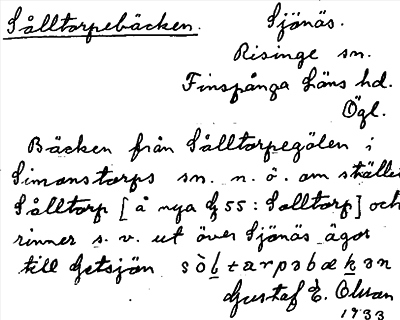 Sålltorpebäcken. Sjönäs.
Risinge sn.
Finspånga läns hd.
Ögl.
Bäcken från Sålltorpegölen i
Simonstorps sn. n. ö. om ställe
Sålltorp [å nya 55: Solltorp] och
rinner s. v. ut över Sjönäs ägor
till Getsjön
Gustaf E. Olsson
1933